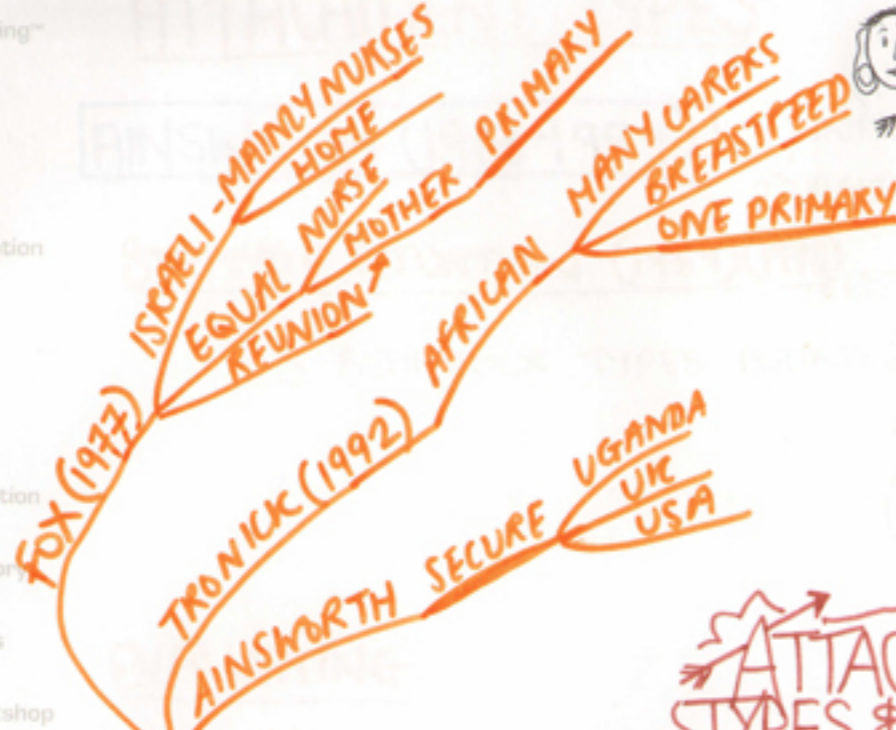 ing™
ation
tion
ory
s
kshop
FOX (1977)
ISRAELI - MAINLY NURSES
HOME
EQUAL
NURSE
MOTHER
PRIMARY
REUNION
TRONICK (1992)
AFRICAN
MANY CARERS
BREASTFEED
ONE PRIMARY
AINSWORTH
SECURE
UGANDA
UK
USA
ATTAC
TYPES &